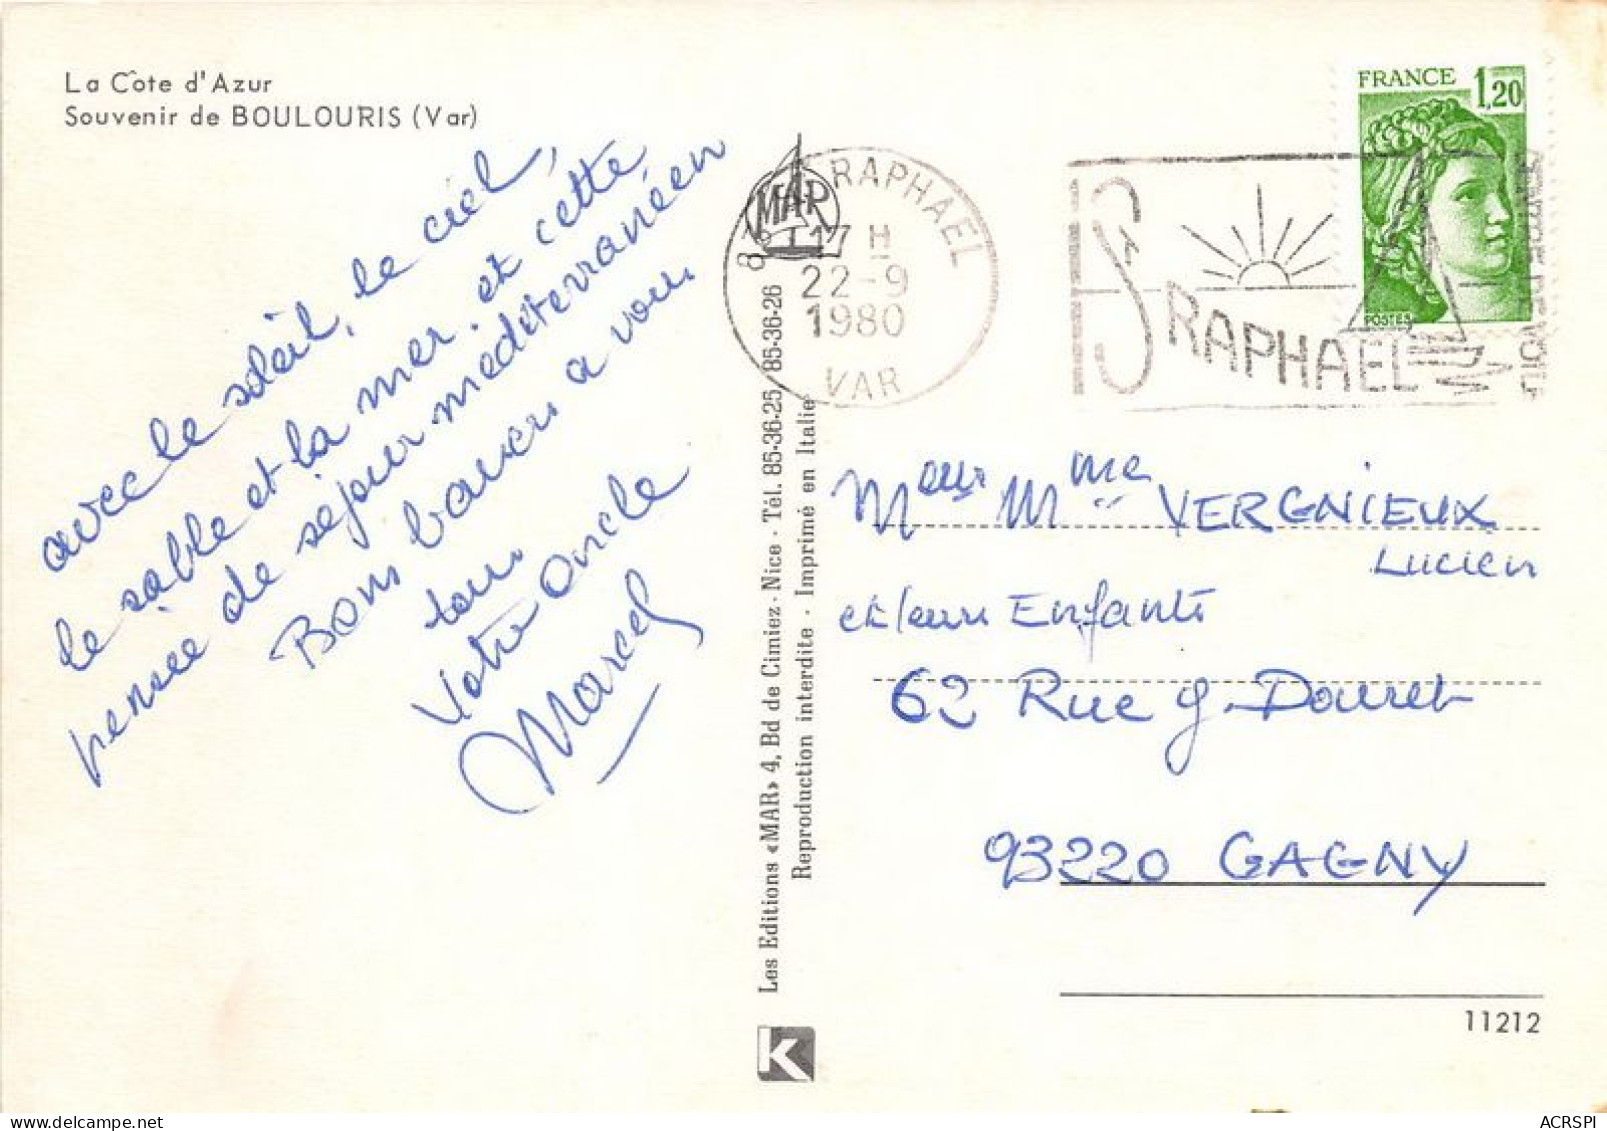 La Côte d'Azur
Souvenir de BOULOURIS (Var)
avec le soleil, le ciel,
le sable et la mer. et cette
pensée de séjour méditerranéen
Bons baisers a vous
tous
Votre Oncle
Marcel
Les Editions «MAR» 4, Bd de Cimiez - Nice - Tél. 85-36-25 85-36-26
Reproduction interdite - Imprimé en Italie
MAR
RAPHAEL
17 H
22-9
1980
VAR
St RAPHAEL
FRANCE 1,20
POSTES
Mr Mme VERGNIEUX
Lucien
et leurs Enfants
62 Rue J. Douret
93220 GAGNY
11212
K
ACRSPI